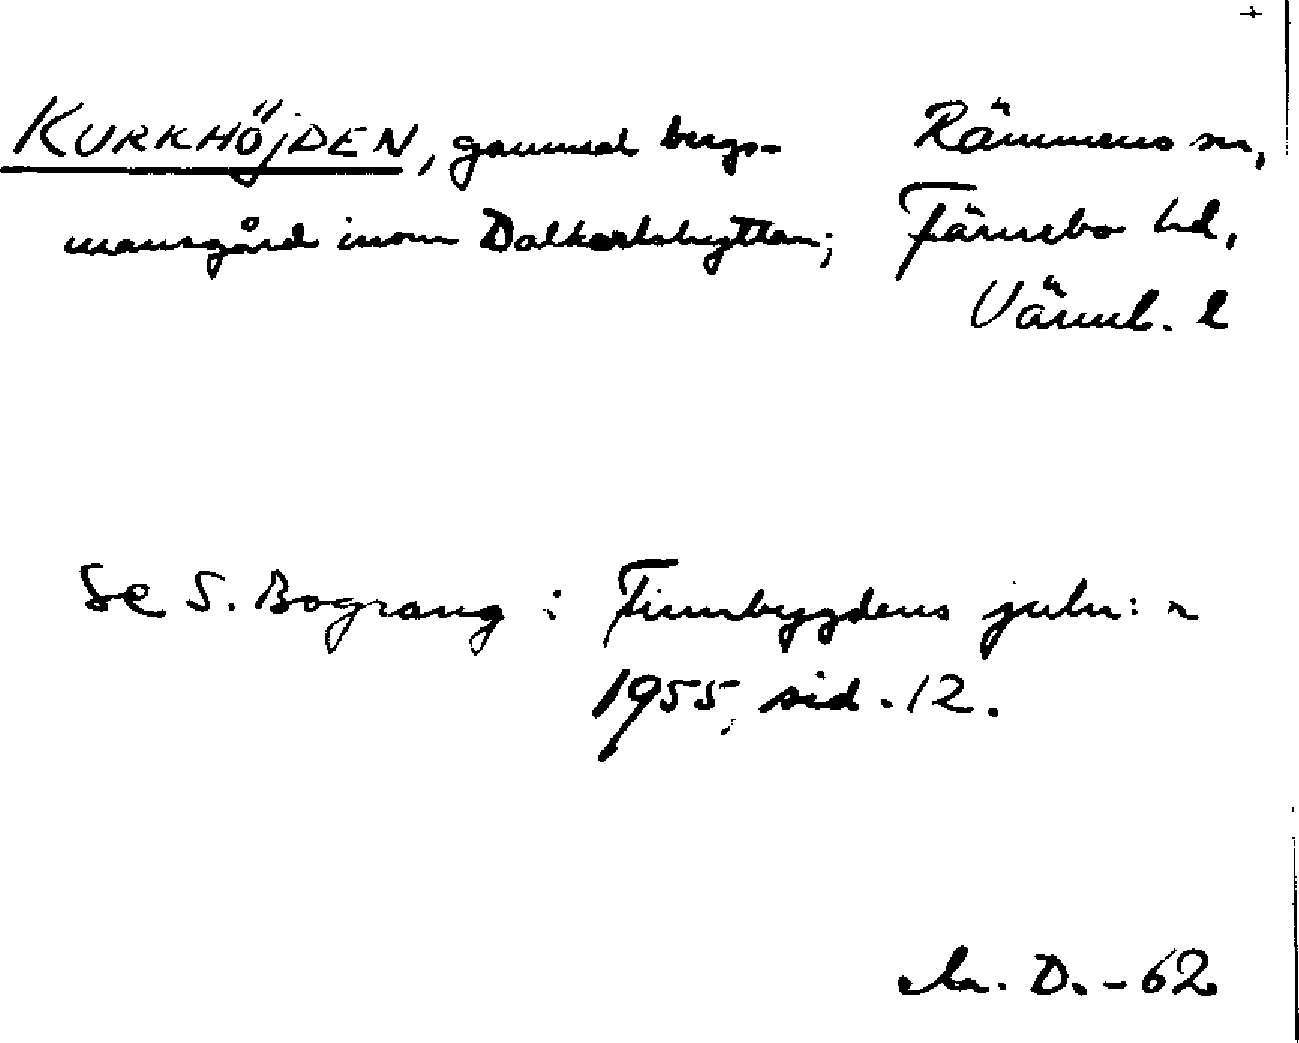 KURKHÖJDEN, gammal bergs-
mansgård inom Dalkarlshyttan;
Rämmens sn,
Färnebo hd,
Värml. l
Se S. Bograng i Finnbygdens julnr
1955, sid. 12.
D. -62